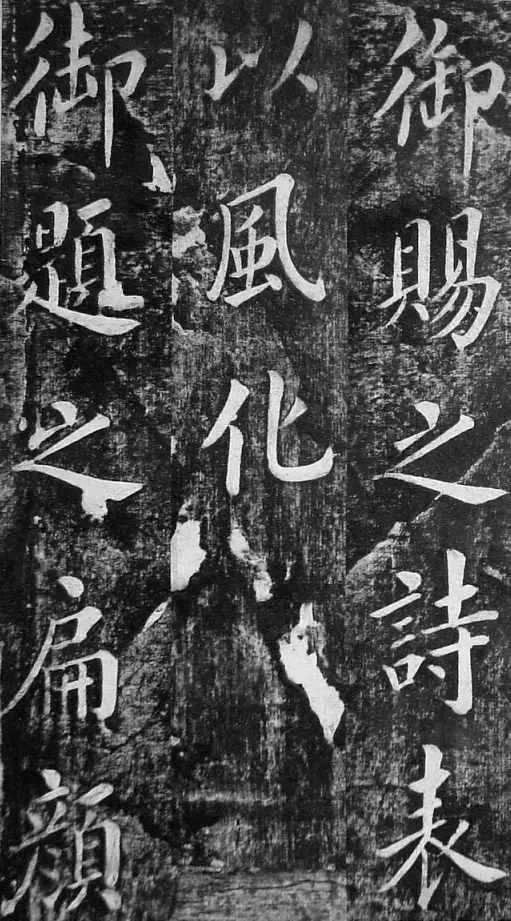 御賜之詩表
以風化
御題之扁顔